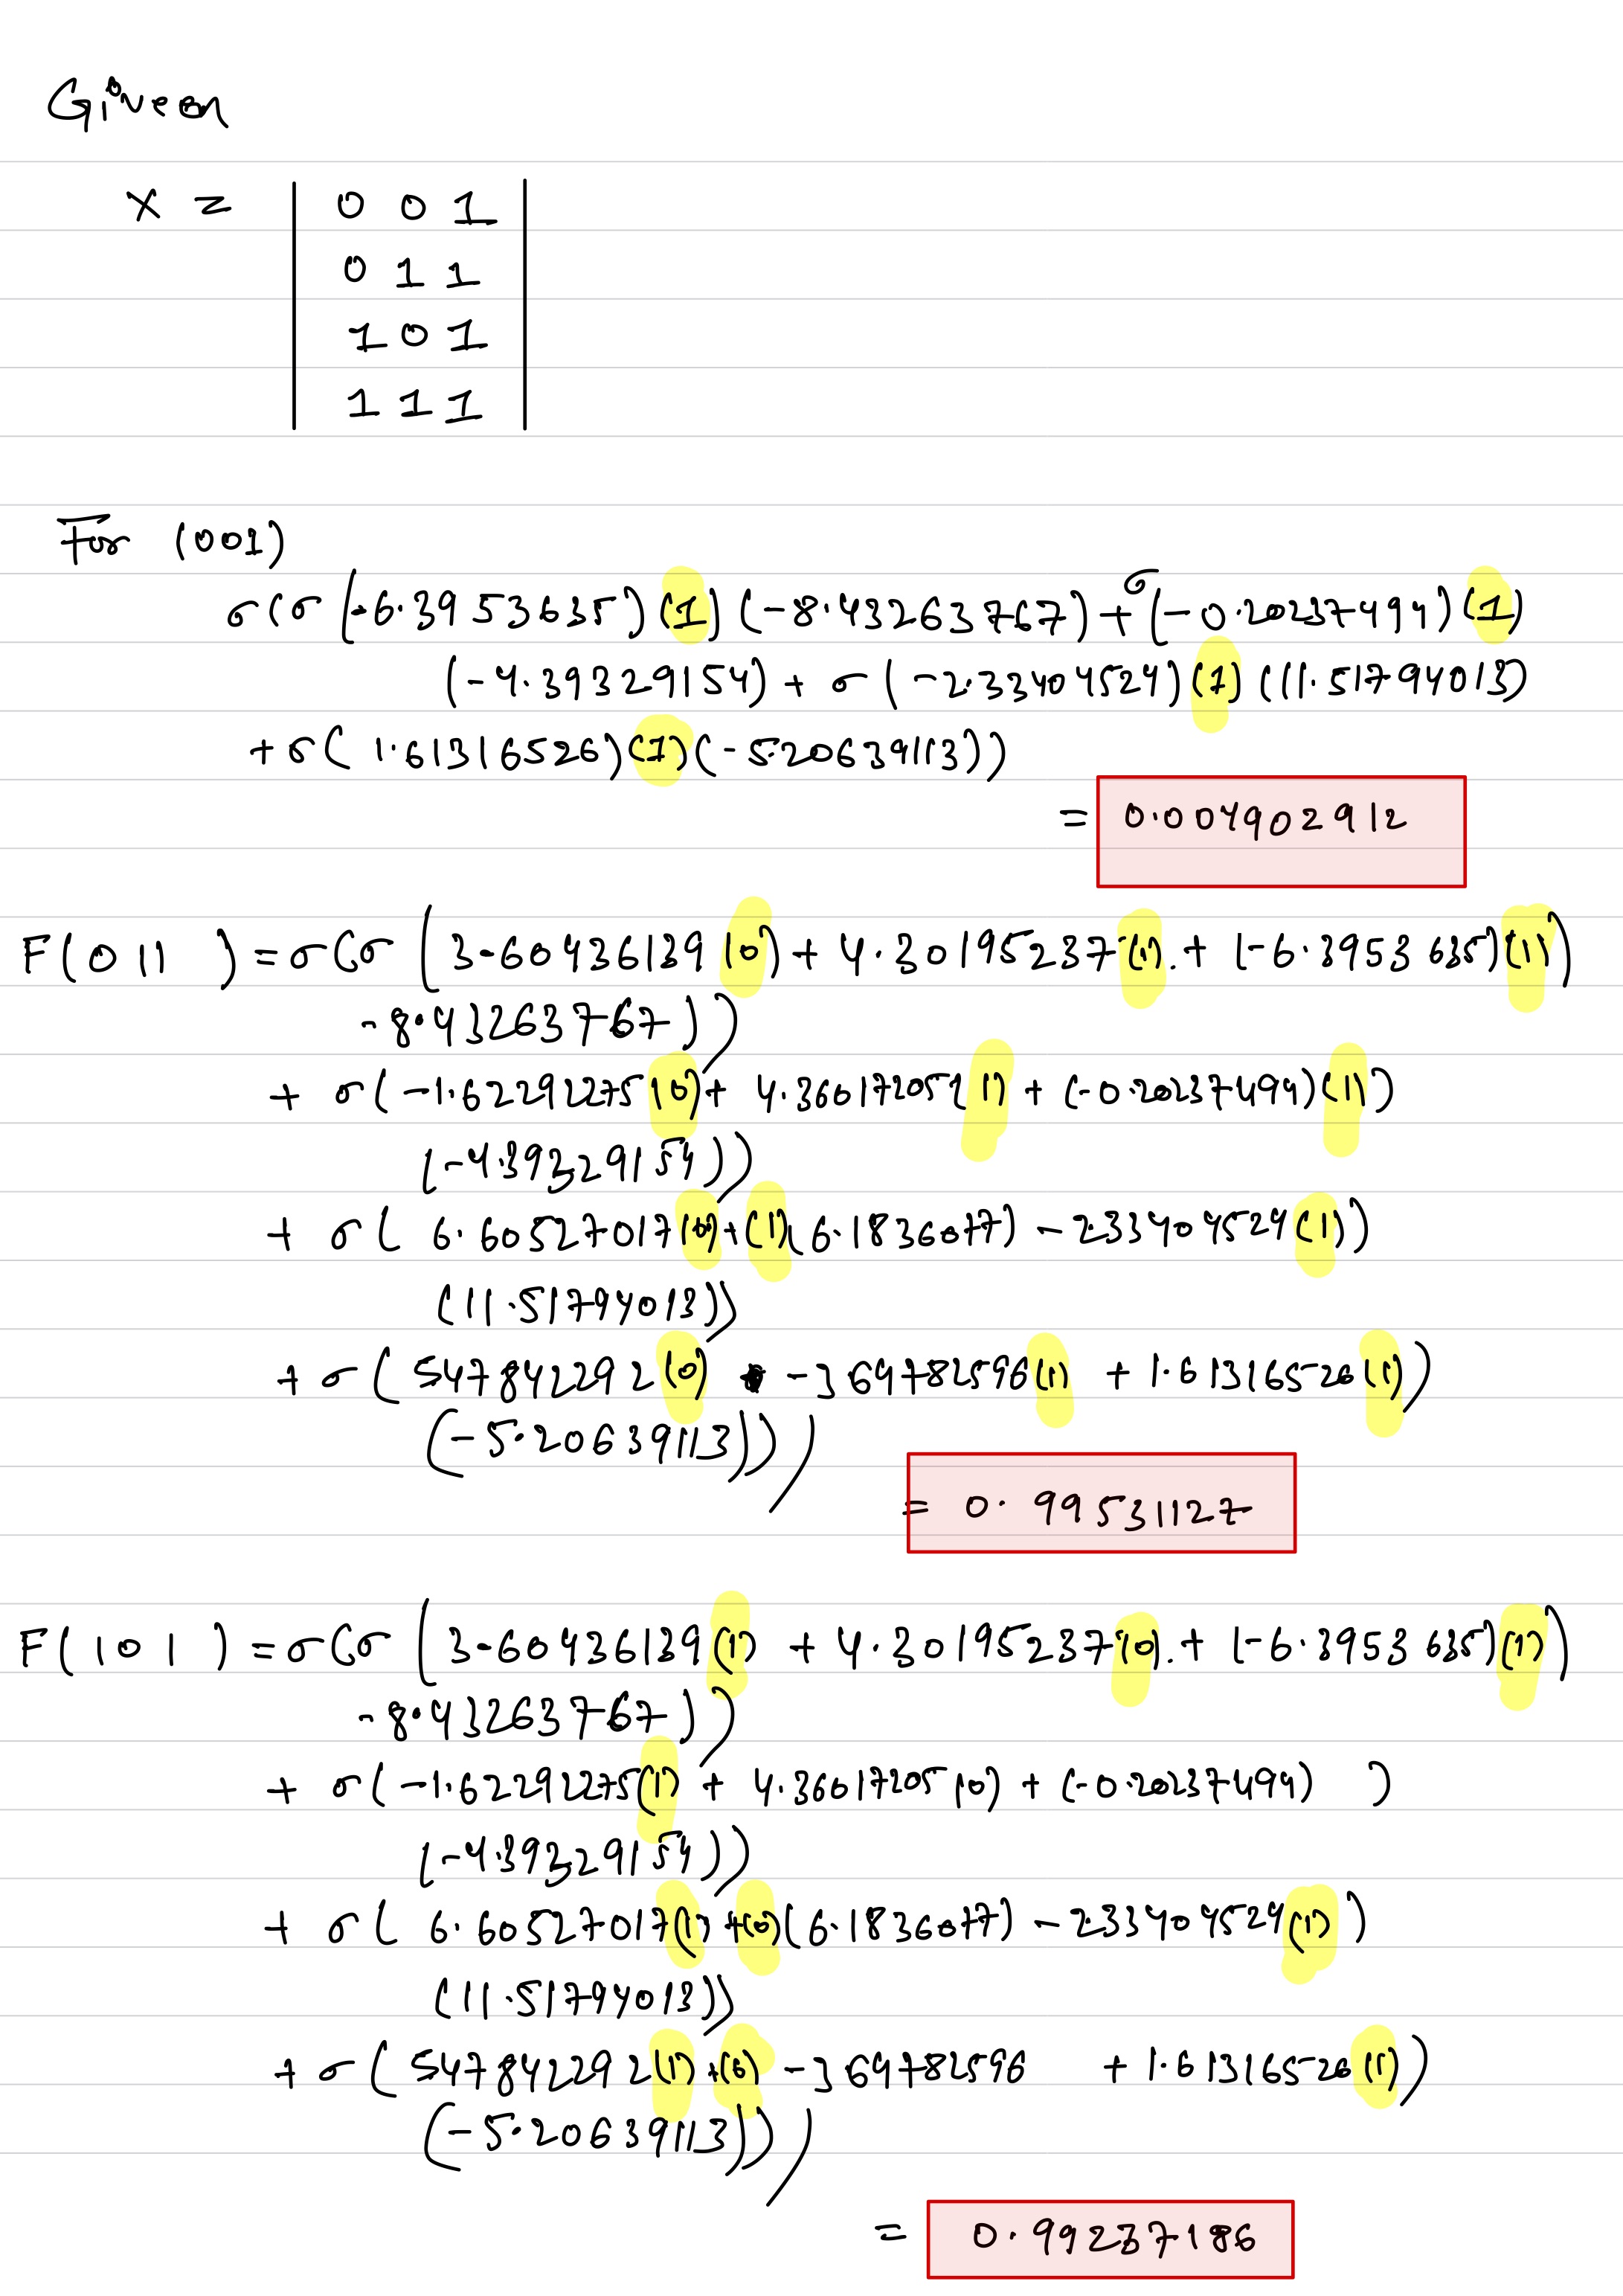 Given
X = | 0 0 1 |
| 0 1 1 |
| 1 0 1 |
| 1 1 1 |
For (001)
σ(σ(-6.3953635)(1)(-8.432637 67) + σ(-0.20237494)(1)
(-4.393291 54) + σ(-2.33404524)(1)(11.51794013)
+ σ(1.61316526)(1)(-5.20639113))
= 0.004902912
F(011) = σ(σ(3.60436139(0) + 4.30195237(1).+ (-6.3953635)(1))
-8.43263767))
+ σ(-1.62292275(0) + 4.36017205(1) + (-0.20237494)(1))
(-4.39329154))
+ σ(6.60527017(0)+(1)(6.1836077) - 2.33404524(1))
(11.51794013))
+ σ(5.47842292(0) -3.69782596(1) + 1.61316526(1))
(-5.20639113)))
= 0.99531127
F(101) = σ(σ(3.60436139(1) + 4.30195237(0).+ (-6.3953635)(1))
-8.43263767))
+ σ(-1.62292275(1) + 4.36017205(0) + (-0.20237494) )
(-4.39329154))
+ σ(6.60527017(1)+(0)(6.1836077) - 2.33404524(1))
(11.51794013))
+ σ(5.47842292(1)+(0) -3.69782596 + 1.61316526(1))
(-5.20639113)))
= 0.99237186